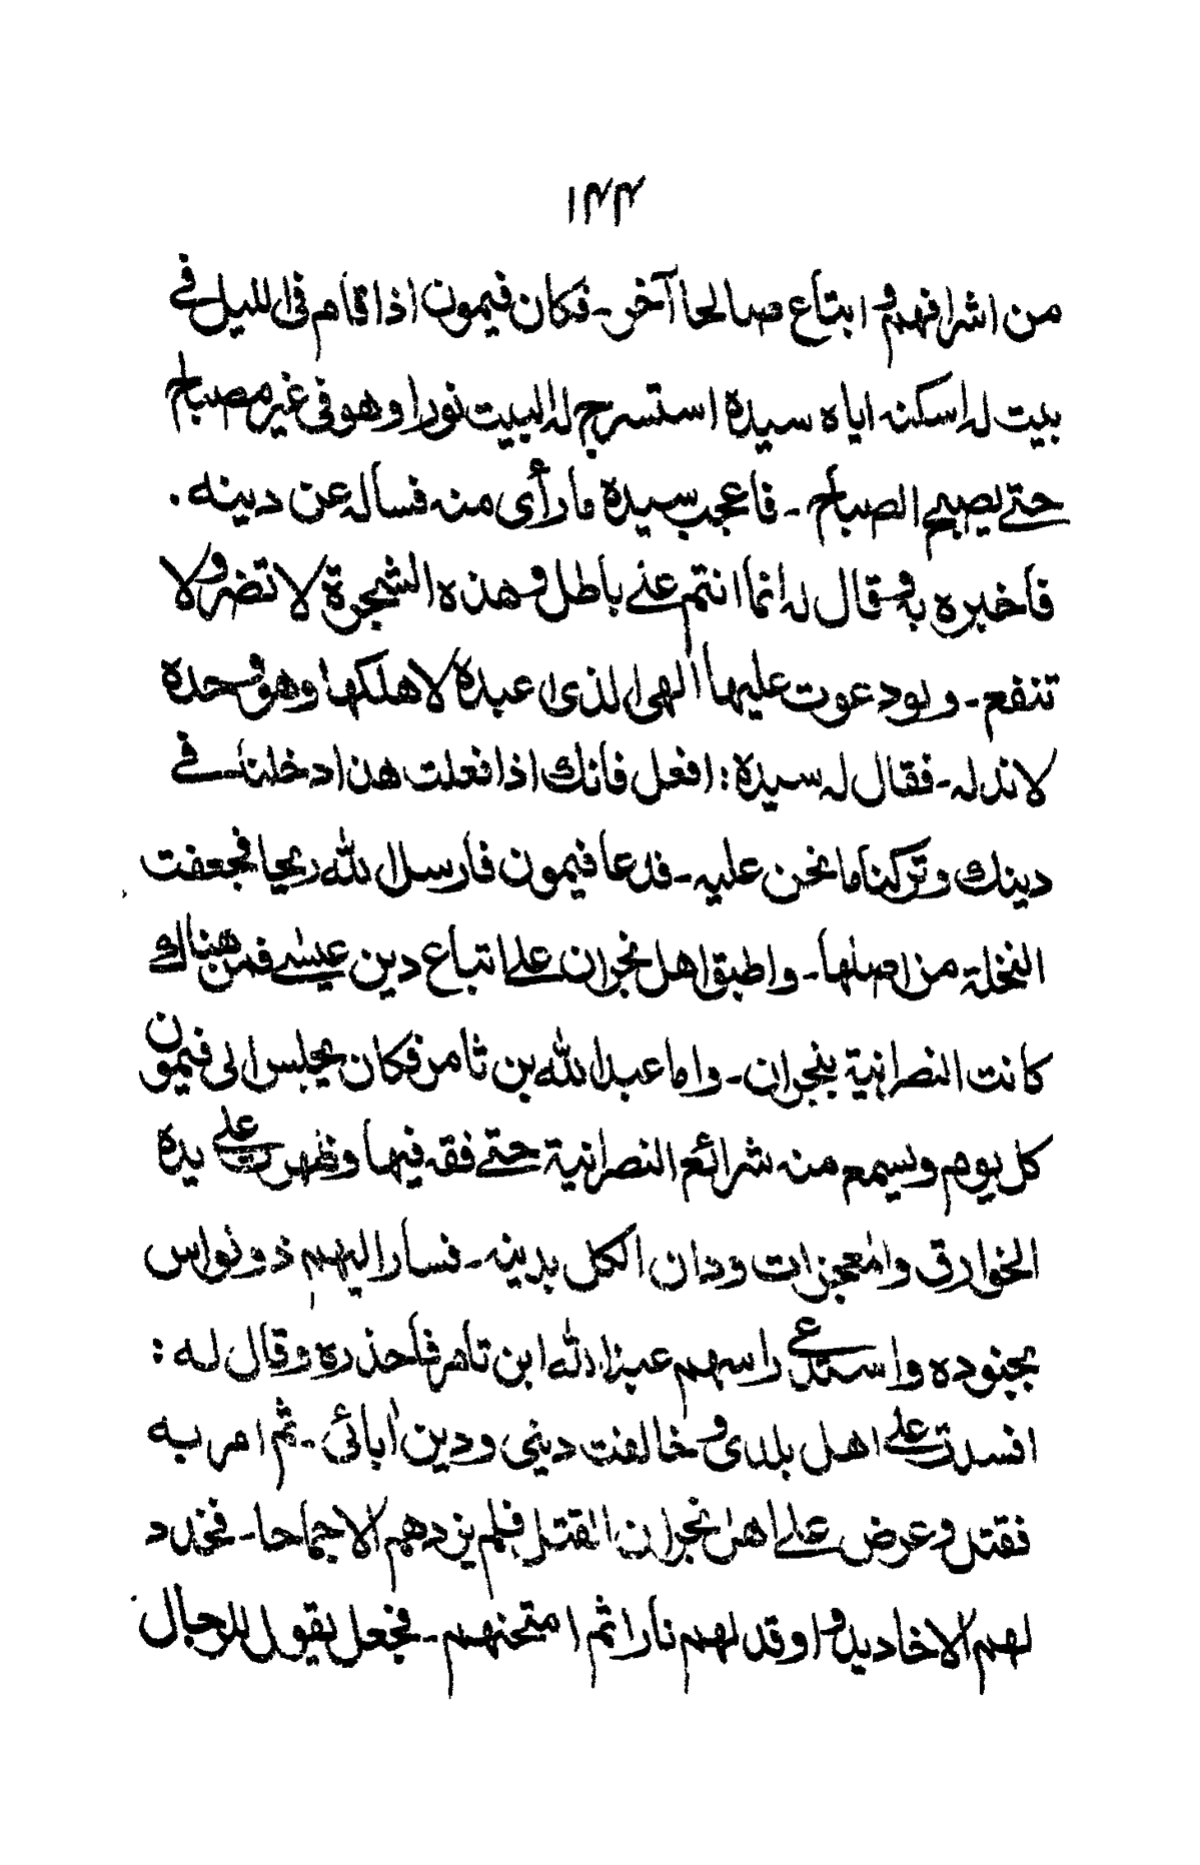 ١٤٤
من اشرافهم و ابتاع صالحا آخر۔ فكان فيمون اذا قام فى الليل في
بيت له اسكنه اياه سيده استسرج له البيت نورا وهو فى غير مصباح
حتے يصبح الصباح ۔ فاعجب سيده مارأى منه فساله عن دينه .
فاخبره به و قال له انما انتم علے باطل و هذه الشجرة لا تضر و لا
تنفع ۔ ولو دعوت عليها الهى الذى اعبده لاهلكها وهو وحده
لاندله ۔ فقال له سيده : افعل فانك اذا فعلت هذا دخلنا في
دينك و تركنا ما نحن عليه ۔ فدعا فيمون فارسل الله ريحا فجعفت
النخلة من اصلها ۔ واطبق اهل نجران علے اتباع دين عيسے فمن هناك
كانت النصرانية بنجران ۔ واما عبد الله بن ثامر فكان يجلس الى فيمون
كل يوم ويسمع منه شرائع النصرانية حتے فقه فيها وظهرت علے يده
الخوارق والمعجزات ودان الكل بدينه ۔ فسار اليهم ذو نواس
بجنوده واستدعى راسهم عبد الله ابن تامر فاحذره وقال له :
افسدت علے اهل بلدى و خالفت دينى ودين اٰبائى ۔ ثم امر به
فقتل وعرض علے اهل نجران القتل فلم يزدهم الا جماحا ۔ فخدد
لهم الاخاديد و اوقد لهم نارا ثم امتحنهم ۔ فجعل يقول للرجال